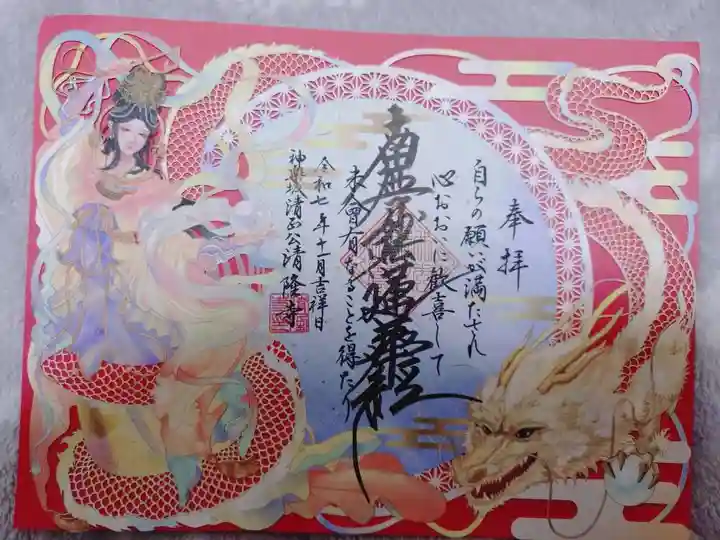 奉拝
自らの願いが満たされ
心おおいに歓喜して
南無妙法蓮華経
未曾有なることを得たり
令和七年十一月吉祥日
清正公清隆寺